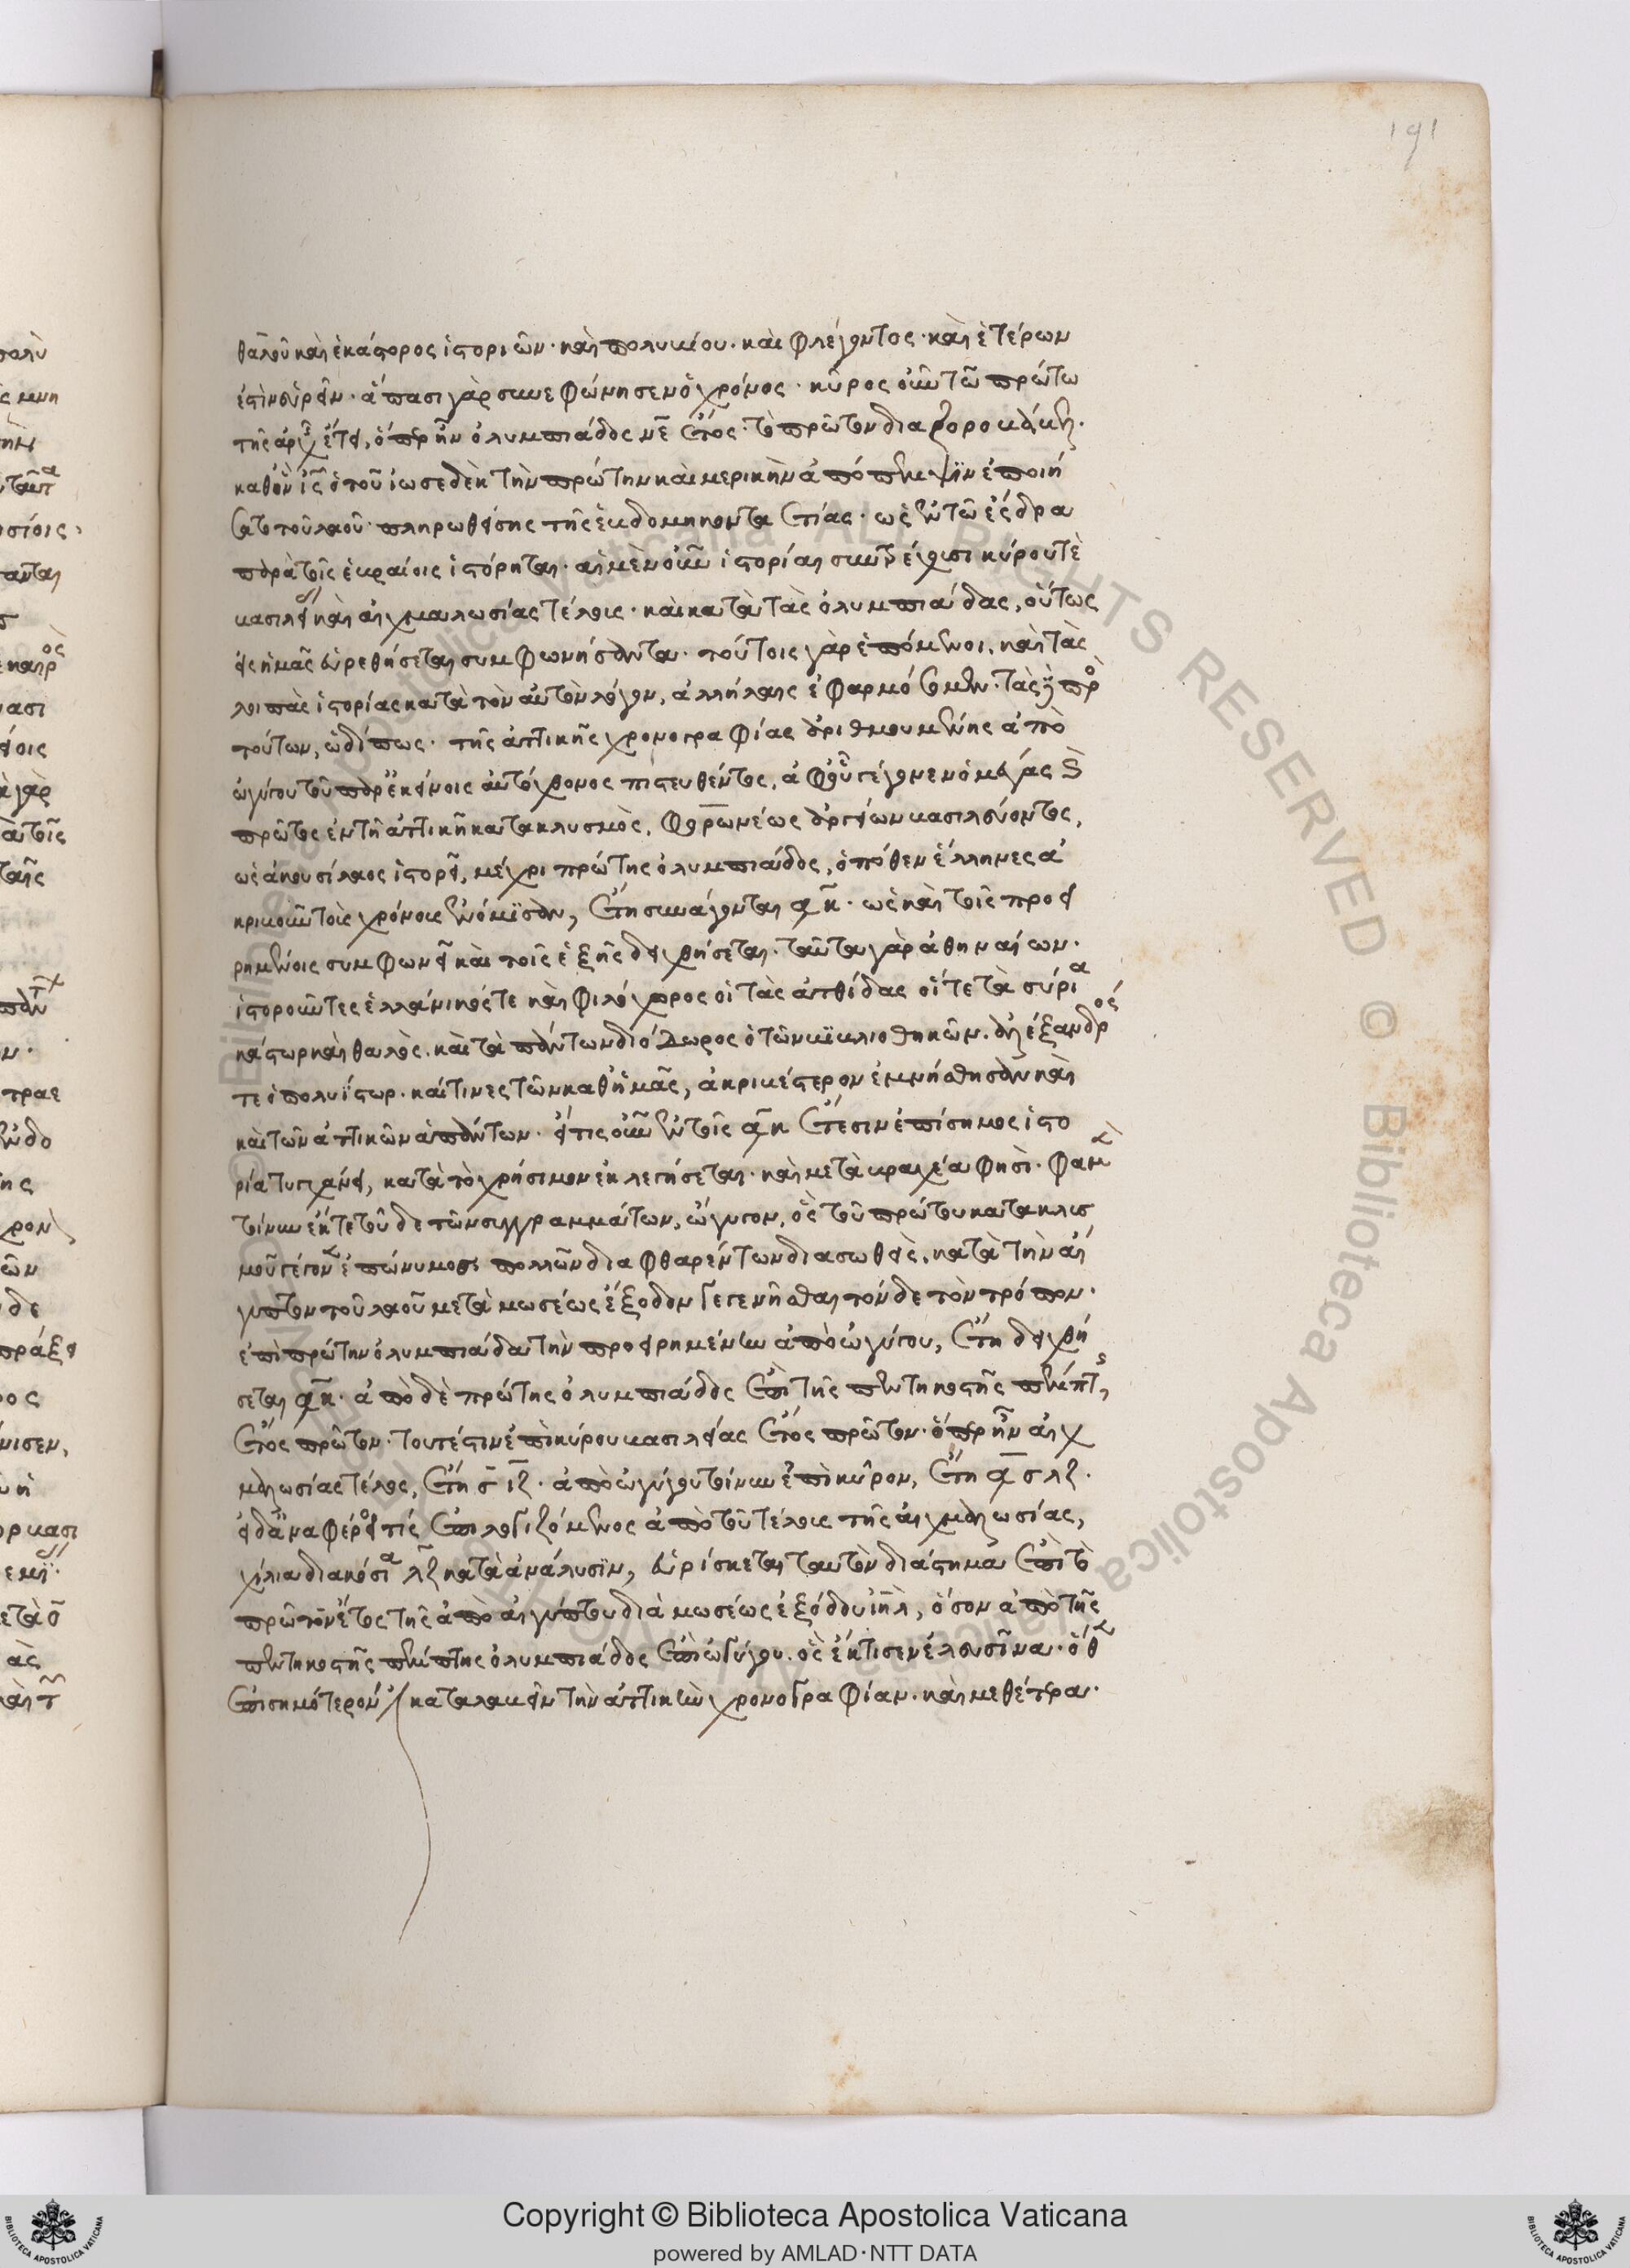 191
θαλοῦ καὶ ἑκάστορος ἱστοριῶν· καὶ πολυβίου· καὶ φλέγοντος· καὶ ἑτέρων
ἐστὶν εὑρεῖν· ἅπασι γὰρ συνεφώνησεν ὁ χρόνος· κῦρος οὖν τῷ πρώτω
τῆς ἀρχ ἔτει, ὅπερ ἦν ὀλυμπιάδος νε ἔτος· τὸ πρῶτον διὰ ζοροβάβελ·
καθ' ὃν ις ὁ τοῦ ἰωσεδὲκ τὴν πρώτην καὶ μερικὴν ἀπόπεμψιν ἐποιή
σατο τοῦ λαοῦ· πληρωθείσης τῆς ἑβδομηκονταετίας· ὡς ἐν τῶ ἔσδρα
παρὰ τοῖς ἑβραίοις ἱστόρηται· αἱ μὲν οὖν ἱστορίαι συντρέχουσι κύρου τὲ
βασιλεί καὶ αἰχμαλωσίας τέλους· καὶ κατὰ τὰς ὀλυμπιάδας, οὕτως
εἰς ἡμᾶς εὑρεθήσεται συμφωνήσαντα· τούτοις γὰρ ἑπόμενοι, καὶ τὰς
λοιπὰς ἱστορίας κατὰ τὸν αὐτὸν λόγον, ἀλλήλαις ἐφαρμόσομεν· τὰς πρὸ
τούτων, ὡδί πως· τῆς ἀττικῆς χρονογραφίας ἀριθμουμένης ἀπὸ
ὠγύγου τοῦ παρ' ἐκείνοις αὐτόχθονος πιστευθέντος, ἀφ' οὗ γέγονεν ὁ μέγας καὶ
πρῶτος ἐν τῇ ἀττικῇ κατακλυσμὸς, φορωνέως ἀργείων βασιλεύοντος,
ὡς ἀκουσίλαος ἱστορεῖ, μέχρι πρώτης ὀλυμπιάδος, ὁπόθεν ἕλληνες ἀ
κριβοῦν τοὺς χρόνους ἐνόμισαν, ἔτη συνάγονται ακ· ὡς καὶ τοῖς προει
ρημένοις συμφωνεῖ καὶ τοῖς ἑξῆς δειχθήσεται· ταῦτα γὰρ ἀθηναίων·
ἱστοροῦντες ἑλλάνικός τε καὶ φιλόχορος οἱ τὰς ἀτθίδας οἵ τε τὰ σύρια
κάστωρ καὶ θαλὸς· καὶ τὰ πάντων διόδωρος ὁ τῶν βιβλιοθηκῶν· ἀλέξανδρός
τε ὁ πολυίστωρ· καί τινες τῶν καθ' ἡμᾶς, ἀκριβέστερον ἐμνήσθησαν καὶ
καὶ τῶν ἀττικῶν ἁπάντων· εἴ τις οὖν ἐν τοῖς ακ ἔτεσιν ἐπίσημος ἱστο
ρία τυγχάνει, κατὰ τὸ χρήσιμον ἐκλεγήσεται· καὶ μετὰ βραχέα φησὶ· φαμὲν
τοίνυν ἔκ γε τοῦδε τῶν συγγραμμάτων, ὤγυγον, ὃς τοῦ πρώτου κατακλυσ
μοῦ γέγονεν ἐπώνυμος πολλῶν διαφθαρέντων διασωθεὶς, κατὰ τὴν αἰ
γύπτου τοῦ λαοῦ μετὰ μωσέως ἔξοδον γεγενῆσθαι τόνδε τὸν τρόπον·
ἐπὶ πρώτην ὀλυμπιάδα τὴν προειρημένην ἀπὸ ὠγύγου, ἔτη δειχθή
σεται ακ· ἀπὸ δὲ πρώτης ὀλυμπιάδος ἐπὶ τῆς πεντηκοστῆς πέμπτης
ἔτος πρῶτον· τουτέστιν ἐπὶ κύρου βασιλείας ἔτος πρῶτον· ὅπερ ἦν αἰχ
μαλωσίας τέλος, ἔτη σ ιζ· ἀπὸ ὠγύγου τοίνυν ἐπὶ κῦρον, ἔτη α σ λζ·
εἰ δ' ἀναφέροι τίς ἐπιλογιζόμενος ἀπὸ τοῦ τέλους τῆς αἰχμαλωσίας,
χίλια διακόσια λζ κατὰ ἀνάλυσιν, εὑρίσκεται ταυτὸν διάστημα ἐπὶ τὸ
πρῶτον ἔτος τῆς ἀπὸ αἰγύπτου διὰ μωσέως ἐξόδου ιηλ, ὅσον ἀπὸ τῆς
πεντηκοστῆς πέμπτης ὀλυμπιάδος ἐπὶ ὠγύγου· ὃς ἔκτισεν ἐλευσῖνα· ὅθεν
ἐπισημότερόν ἐστι καταλαβεῖν τὴν ἀττικὴν χρονογραφίαν· καὶ μεθ' ἕτερα·
Copyright © Biblioteca Apostolica Vaticana
powered by AMLAD·NTT DATA